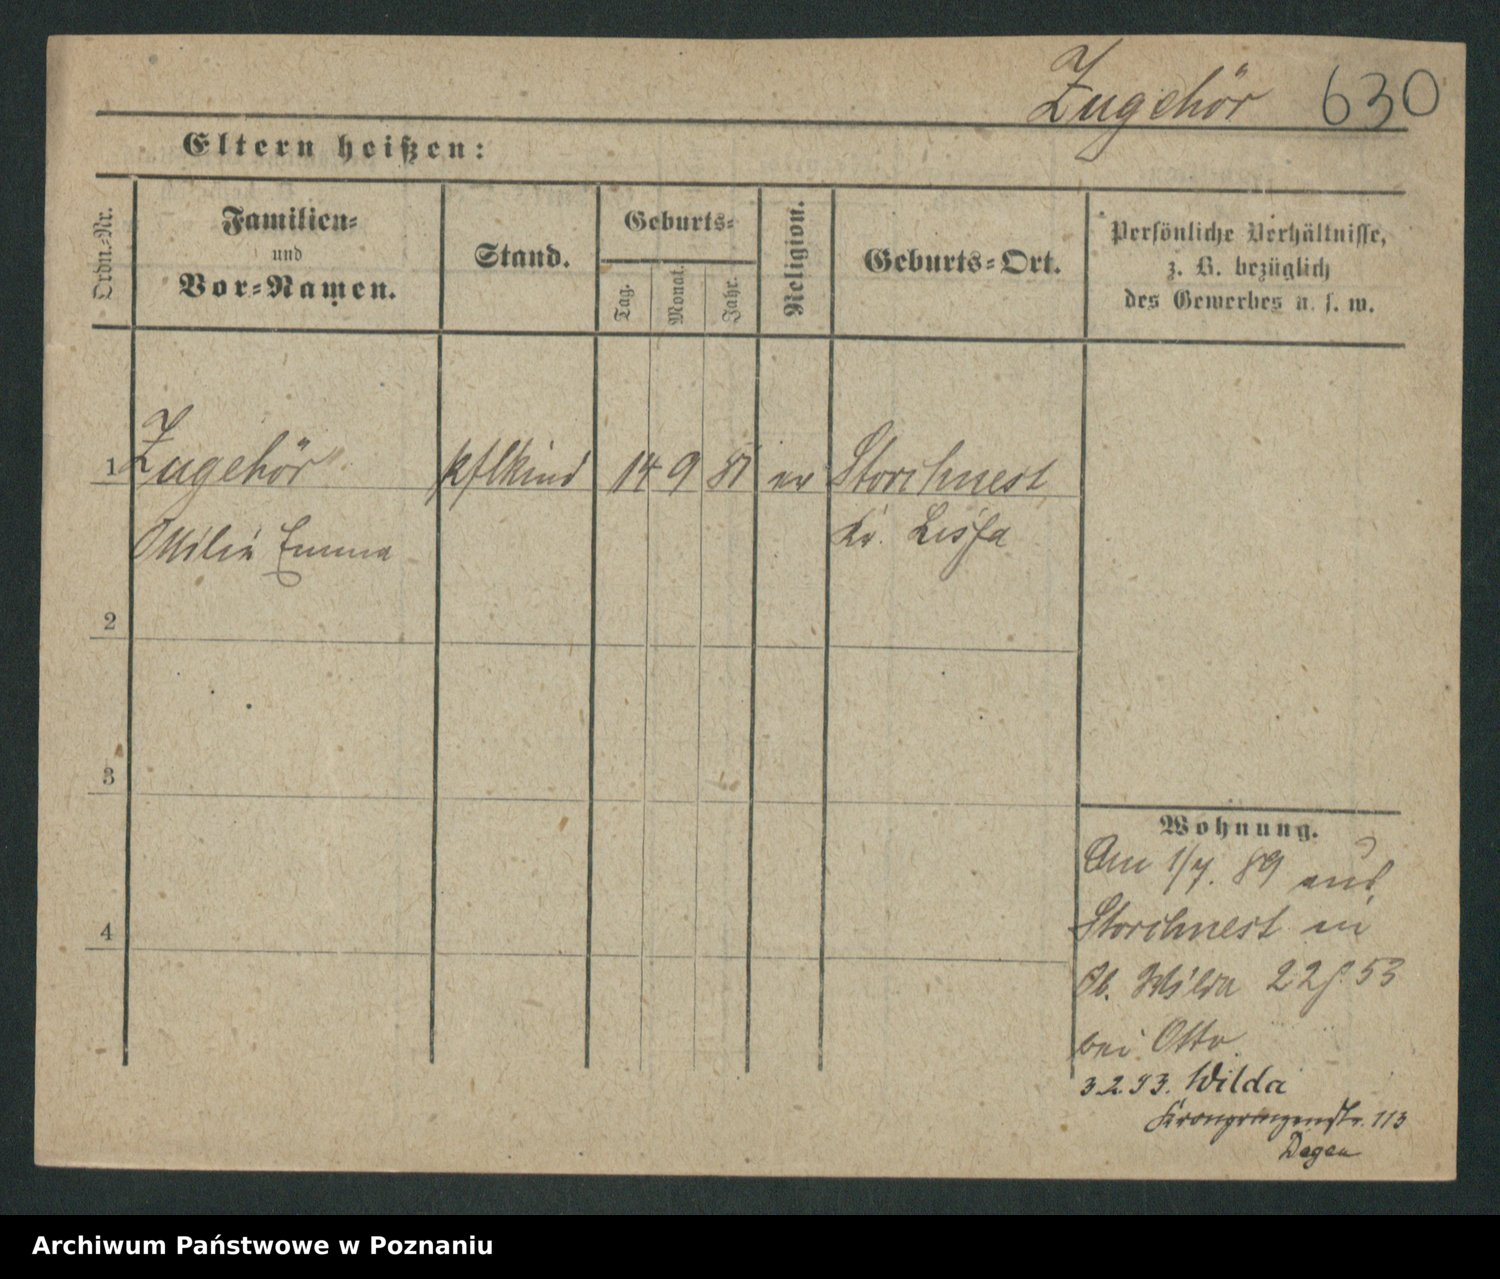 Zugehör 630
Eltern heißen:
Ordn.-Nr.
Familien-
und
Vor-Namen.
Stand.
Geburts-
Tag.
Monat.
Jahr.
Religion.
Geburts-Ort.
Persönliche Verhältnisse,
z. B. bezüglich
des Gewerbes u. s. w.
1 Zugehör pflkind 14 9 87 ev Storchnest
Ottilie Emma Kr. Lissa
2
3
4
Wohnung.
Am 1/7. 89 aus
Storchnest in
Ob. Wilda 22 53
bei Otto
3.2.93. Wilda
Kronprinzenstr. 113
Degen
Archiwum Państwowe w Poznaniu